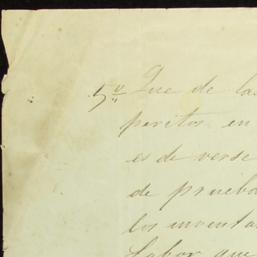 5º Que de la
peritos en
es de verse
de prueba
los inventa
Labor que